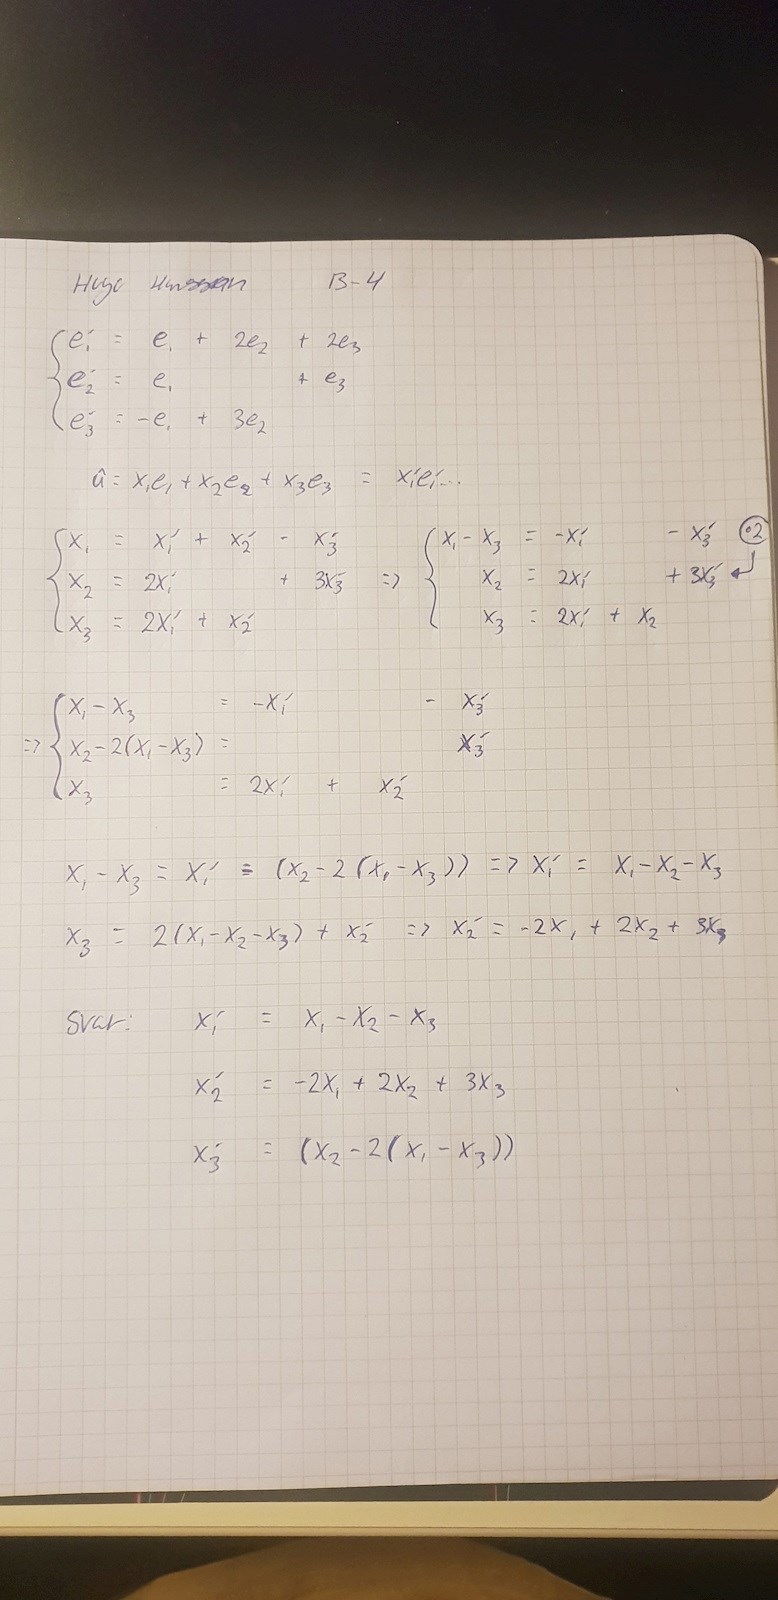 B-4
e₁′ = e₁ + 2e₂ + 2e₃
e₂′ = e₁ + e₃
e₃′ = -e₁ + 3e₂
û = x₁e₁ + x₂e₂ + x₃e₃ = x₁′e₁′...
x₁ = x₁′ + x₂′ - x₃′
x₂ = 2x₁′ + 3x₃′ =>
x₃ = 2x₁′ + x₂′
x₁ - x₃ = -x₁′ - x₃′ ·2
x₂ = 2x₁′ + 3x₃′
x₃ = 2x₁′ + x₂
x₁ - x₃ = -x₁′ - x₃′
=> x₂ - 2(x₁ - x₃) = x₃′
x₃ = 2x₁′ + x₂′
x₁ - x₃ = x₁′ = (x₂ - 2(x₁ - x₃)) => x₁′ = x₁ - x₂ - x₃
x₃ = 2(x₁ - x₂ - x₃) + x₂′ => x₂′ = -2x₁ + 2x₂ + 3x₃
Svar: x₁′ = x₁ - x₂ - x₃
x₂′ = -2x₁ + 2x₂ + 3x₃
x₃′ = (x₂ - 2(x₁ - x₃))